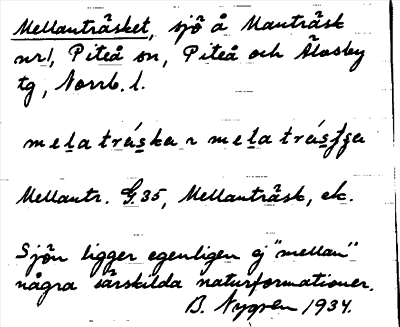 Mellanträsket, sjö å Manträsk
nr 1, Piteå sn, Piteå och Älvsby
tg, Norrb. l.
melatráska ~ melatrásſga
Mellantr. G.35, Mellanträsk, ek.
Sjön ligger egenligen ej "mellan"
några särskilda naturformationer.
B. Nygren 1934.